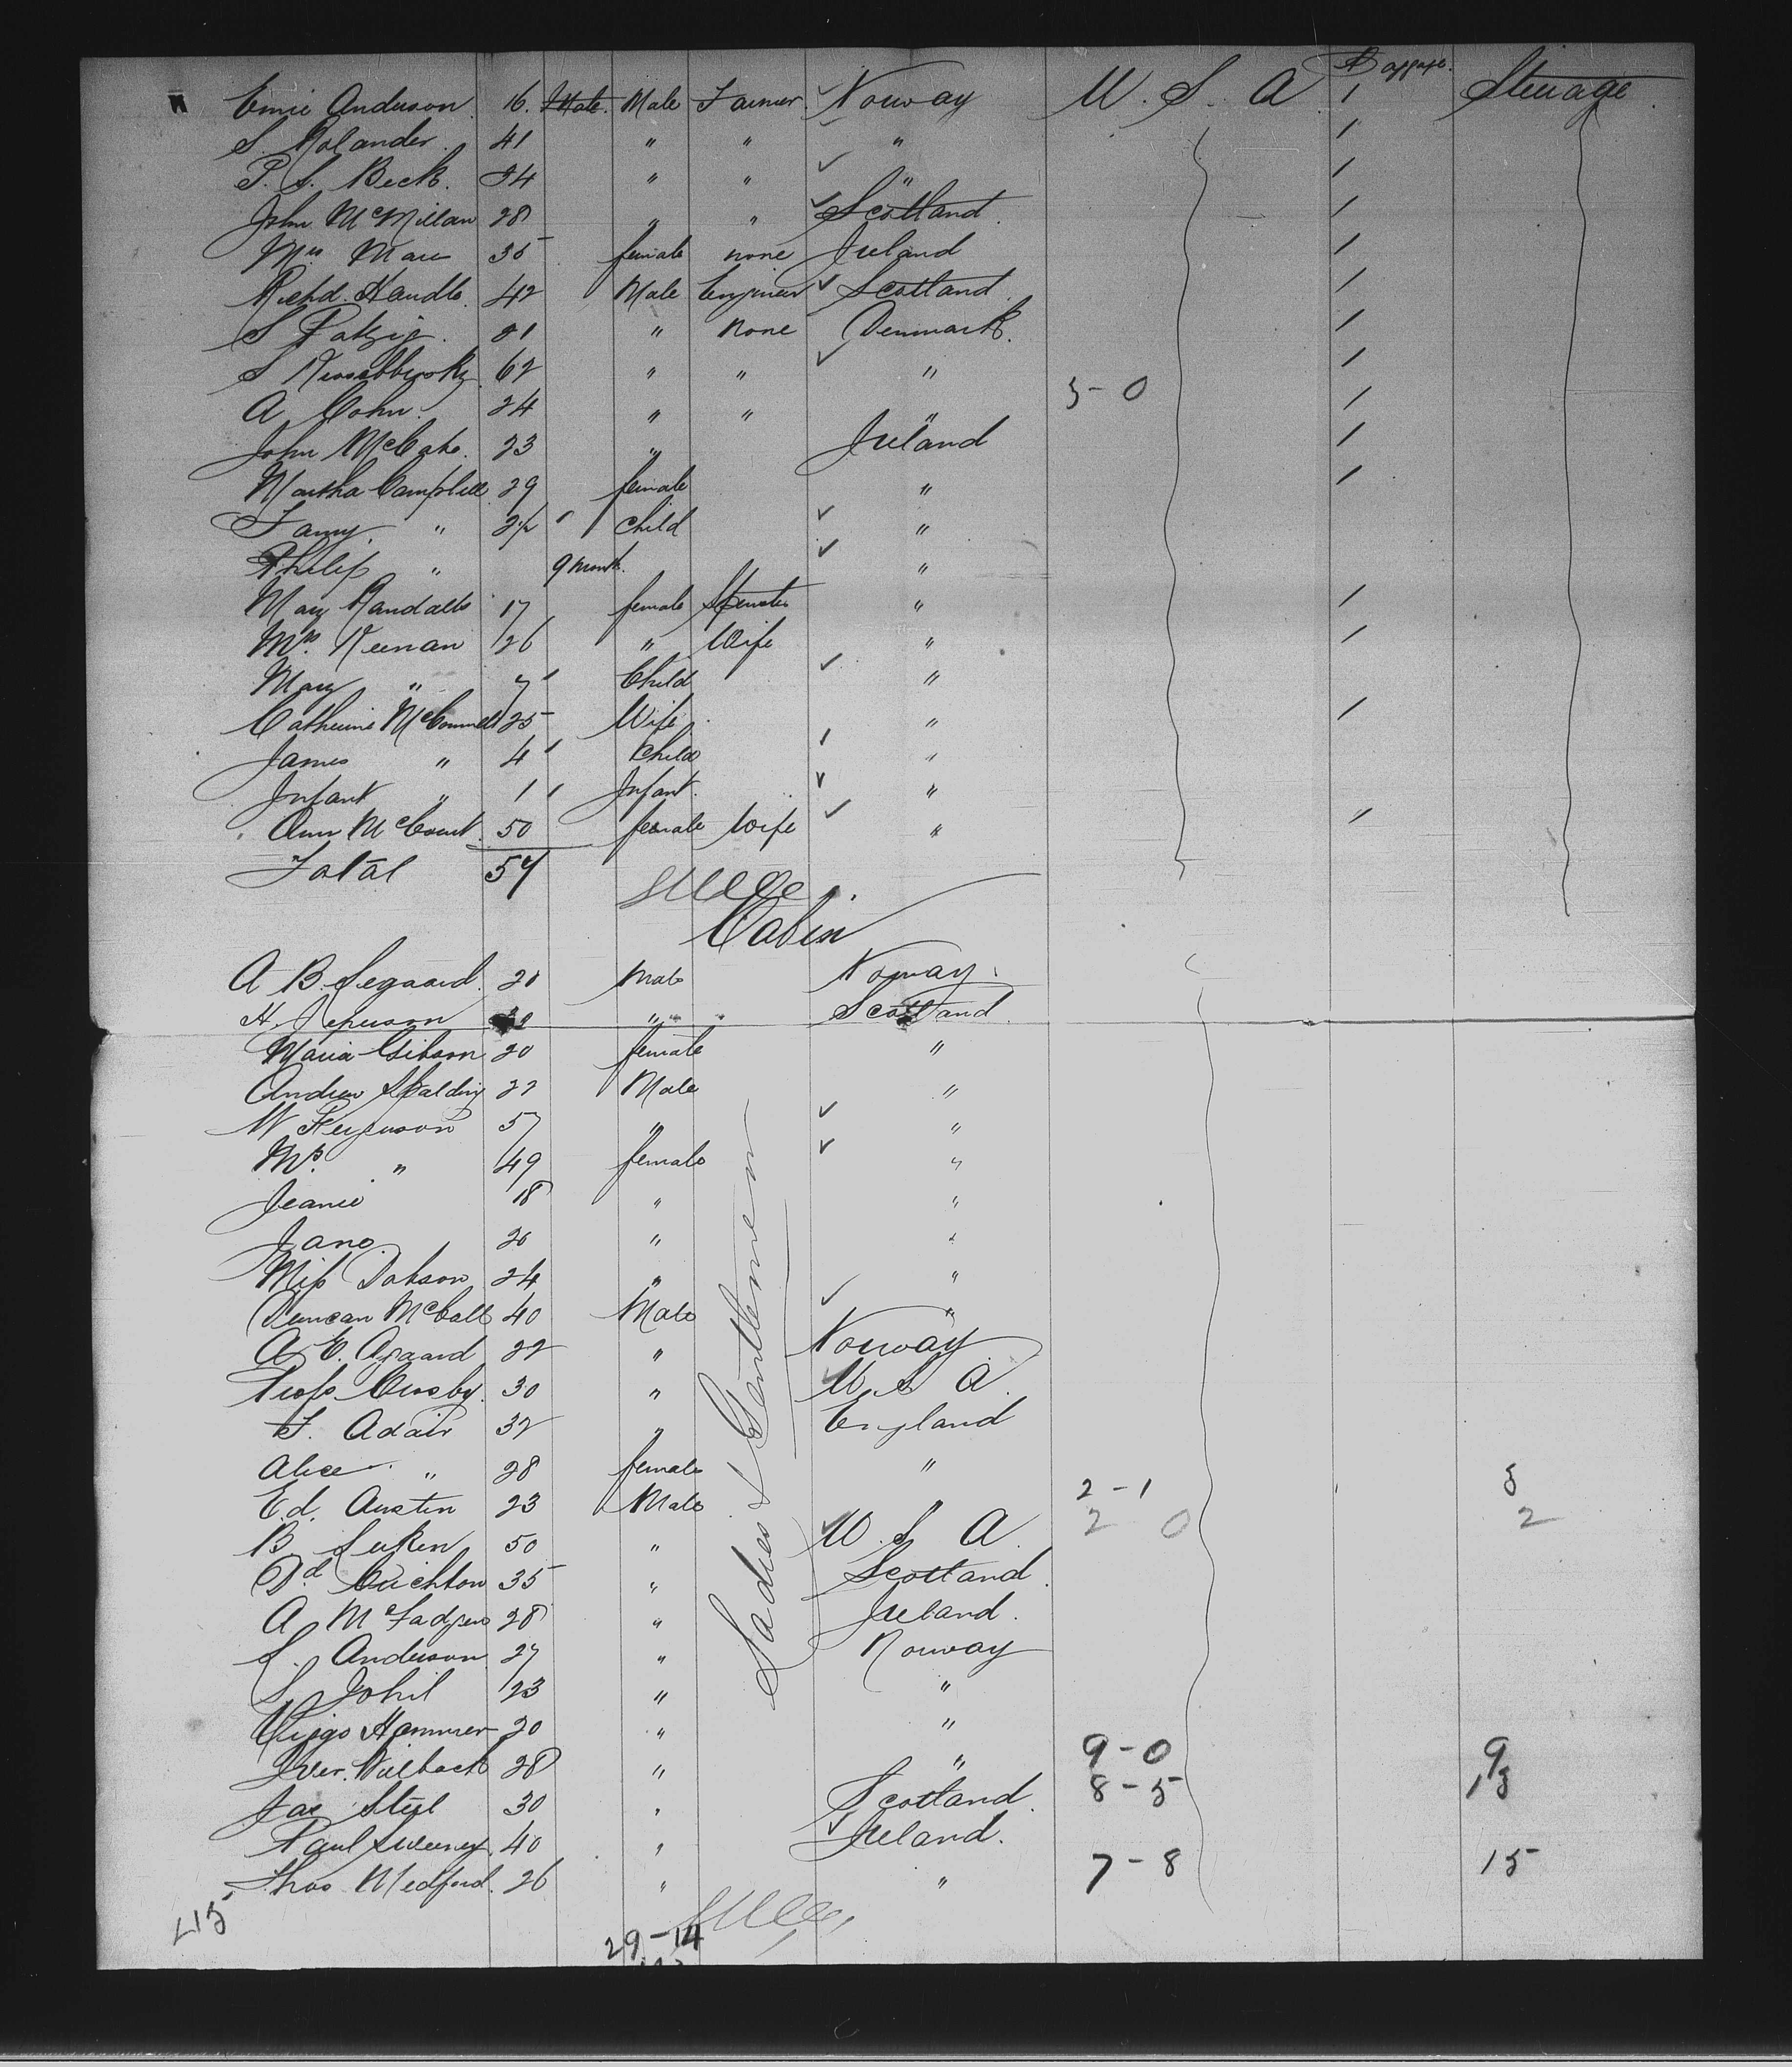 Baggage.
Emie Anderson 16. Male. Male Farmer Norway U. S. A 1 Steerage
S. Molander. 41 " " " /
P. S. Beck. 24 " " " /
John McMillan 28 " " Scotland. /
Mrs Marr 35 female none Ireland /
Richd. Handle. 42 Male Engineer Scotland. /
S 21 " none Denmark. /
S 62 " " " /
A Cohn. 24 " " " 5-0 /
John McCabe. 23 " Ireland /
Martha Campbell 29 female " /
Fanny. " Child "
Philip " 9 month. "
Mary Randalls 17 female Spinster " /
Mrs. Keenan 26 " Wife " /
Mary " 7 Child "
Catherine McConnell 25 Wife " /
James " 4 Child "
Infant " 1 Infant. "
Ann McCourt. 50 female Wife " "
Total 57
Cabin
A B. Segaard. 20 Male Norway.
H. "  Scotland.
Maria Gibson 20 female "
Andrew Spalding 22 Male "
W Ferguson 57 " "
Mrs. " 49 female "
Jeanie 18 " "
Jane. 20 " "
Miss Dobson 24 " "
Duncan McCall 40 Male "
A. E. Agaard 22 " Norway
Profs. Crosby. 30 " U S A.
T. Adair 32 " England
Alice " 28 female "
Ed. Austin 23 Male " 2-1 5
B. 50 " U. S. A. 2 0 2
Dd. Crichton 35 " Scotland.
A McFadyen 28 " Ireland.
S. Anderson 27 " Norway
S. Johil 23 " "
Viggo Hammer 20 " "
Iver. 28 " " 9-0 9
Jas Steel 30 " Scotland. 8-5 13
Paul Sweeney. 40 " Ireland.
Thos Medford. 26 " " 7-8 15
Ladies & Gentlemen
29-14